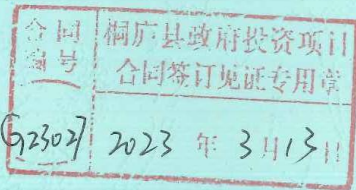 合同
编号
桐庐县政府投资项目
合同签订见证专用章
2023 年 3月13日